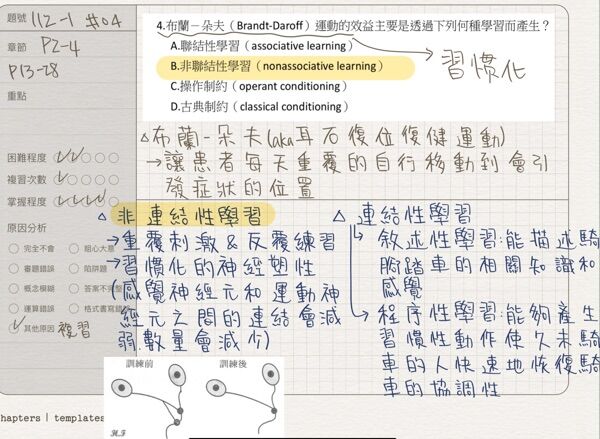 題號 112-1 #04
章節 P2-4
P13-28
重點
4.布蘭－朵夫（Brandt-Daroff）運動的效益主要是透過下列何種學習而產生？
A.聯結性學習（associative learning）
B.非聯結性學習（nonassociative learning）
C.操作制約（operant conditioning）
D.古典制約（classical conditioning）
習慣化
△布蘭-朵夫(aka耳石復位復健運動)
→讓患者每天重覆的自行移動到會引
發症狀的位置
困難程度
複習次數
掌握程度
原因分析
完全不會
粗心大意
審題錯誤
陷阱題
概念模糊
答案不完整
運算錯誤
格式書寫錯
其他原因 複習
△非連結性學習
→重覆刺激&反覆練習
→習慣化的神經塑性
(感覺神經元和運動神
經元之間的連結會減
弱.數量會減少)
△連結性學習
→敘述性學習:能描述騎
腳踏車的相關知識和
感覺
→程序性學習:能夠產生
習慣性動作使久未騎
車的人快速地恢復騎
車的協調性
訓練前
訓練後
H.F
hapters | templates